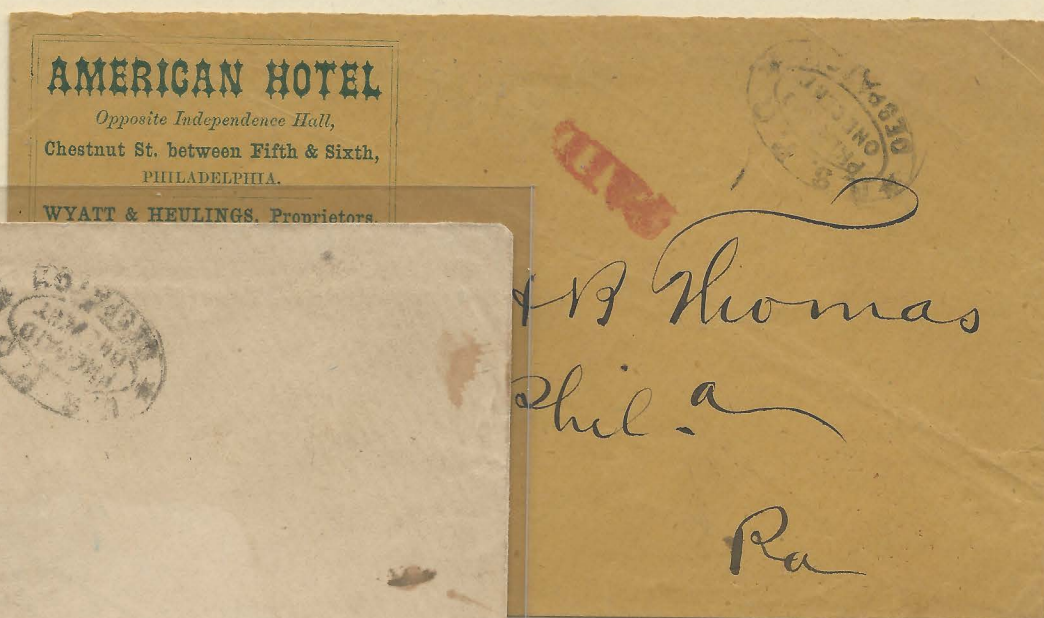 AMERICAN HOTEL
Opposite Independence Hall,
Chestnut St. between Fifth & Sixth,
PHILADELPHIA.
WYATT & HEULINGS, Proprietors.
PAID
U. S. P. O.
DESPATCH
PRE
ONE CENT
B Thomas
Phil.a
Pa